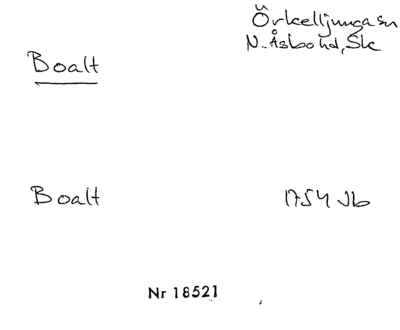 Örkelljunga sn
N. Åsbo hd, Sk
Boalt
Boalt 1754 Jb
Nr 18521